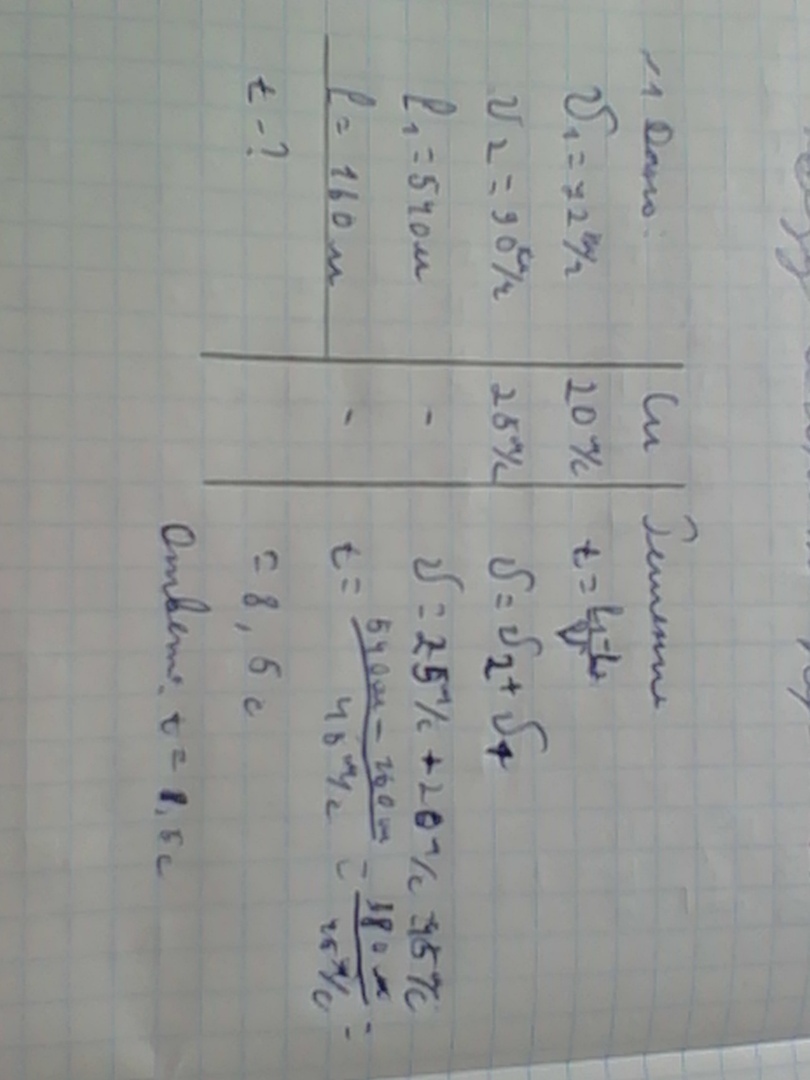 √1 Дано:
υ₁ = 72 км/ч
υ 2 = 90 км/ч
l₁ = 540 м
l = 160 м
t - ?
Си
20 м/с
25 м/с
-
-
Решение
t =
υ = υ₂ + υ₁
υ = 25 м/с + 20 м/с = 45 м/с
t = 540м - 160м / 45 м/с = 380 м / 45 м/с =
= 8,5 с
Ответ: t = 8,5 с